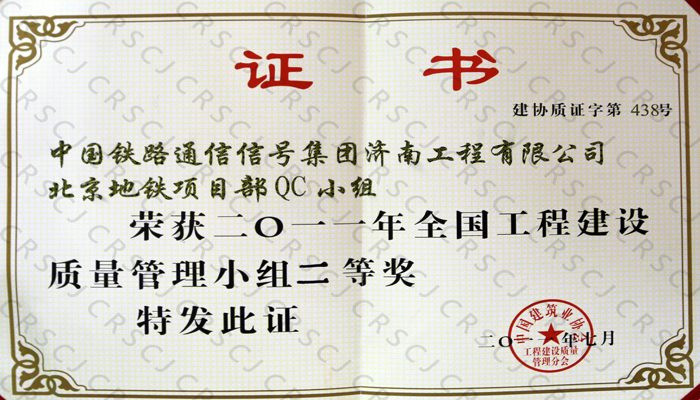 证 书
建协质证字第 438号
中国铁路通信信号集团济南工程有限公司
北京地铁项目部QC小组
荣获二〇一一年全国工程建设
质量管理小组二等奖
特发此证
二〇一一年七月
中国建筑业协会
工程建设质量
管理分会
CRSCJ